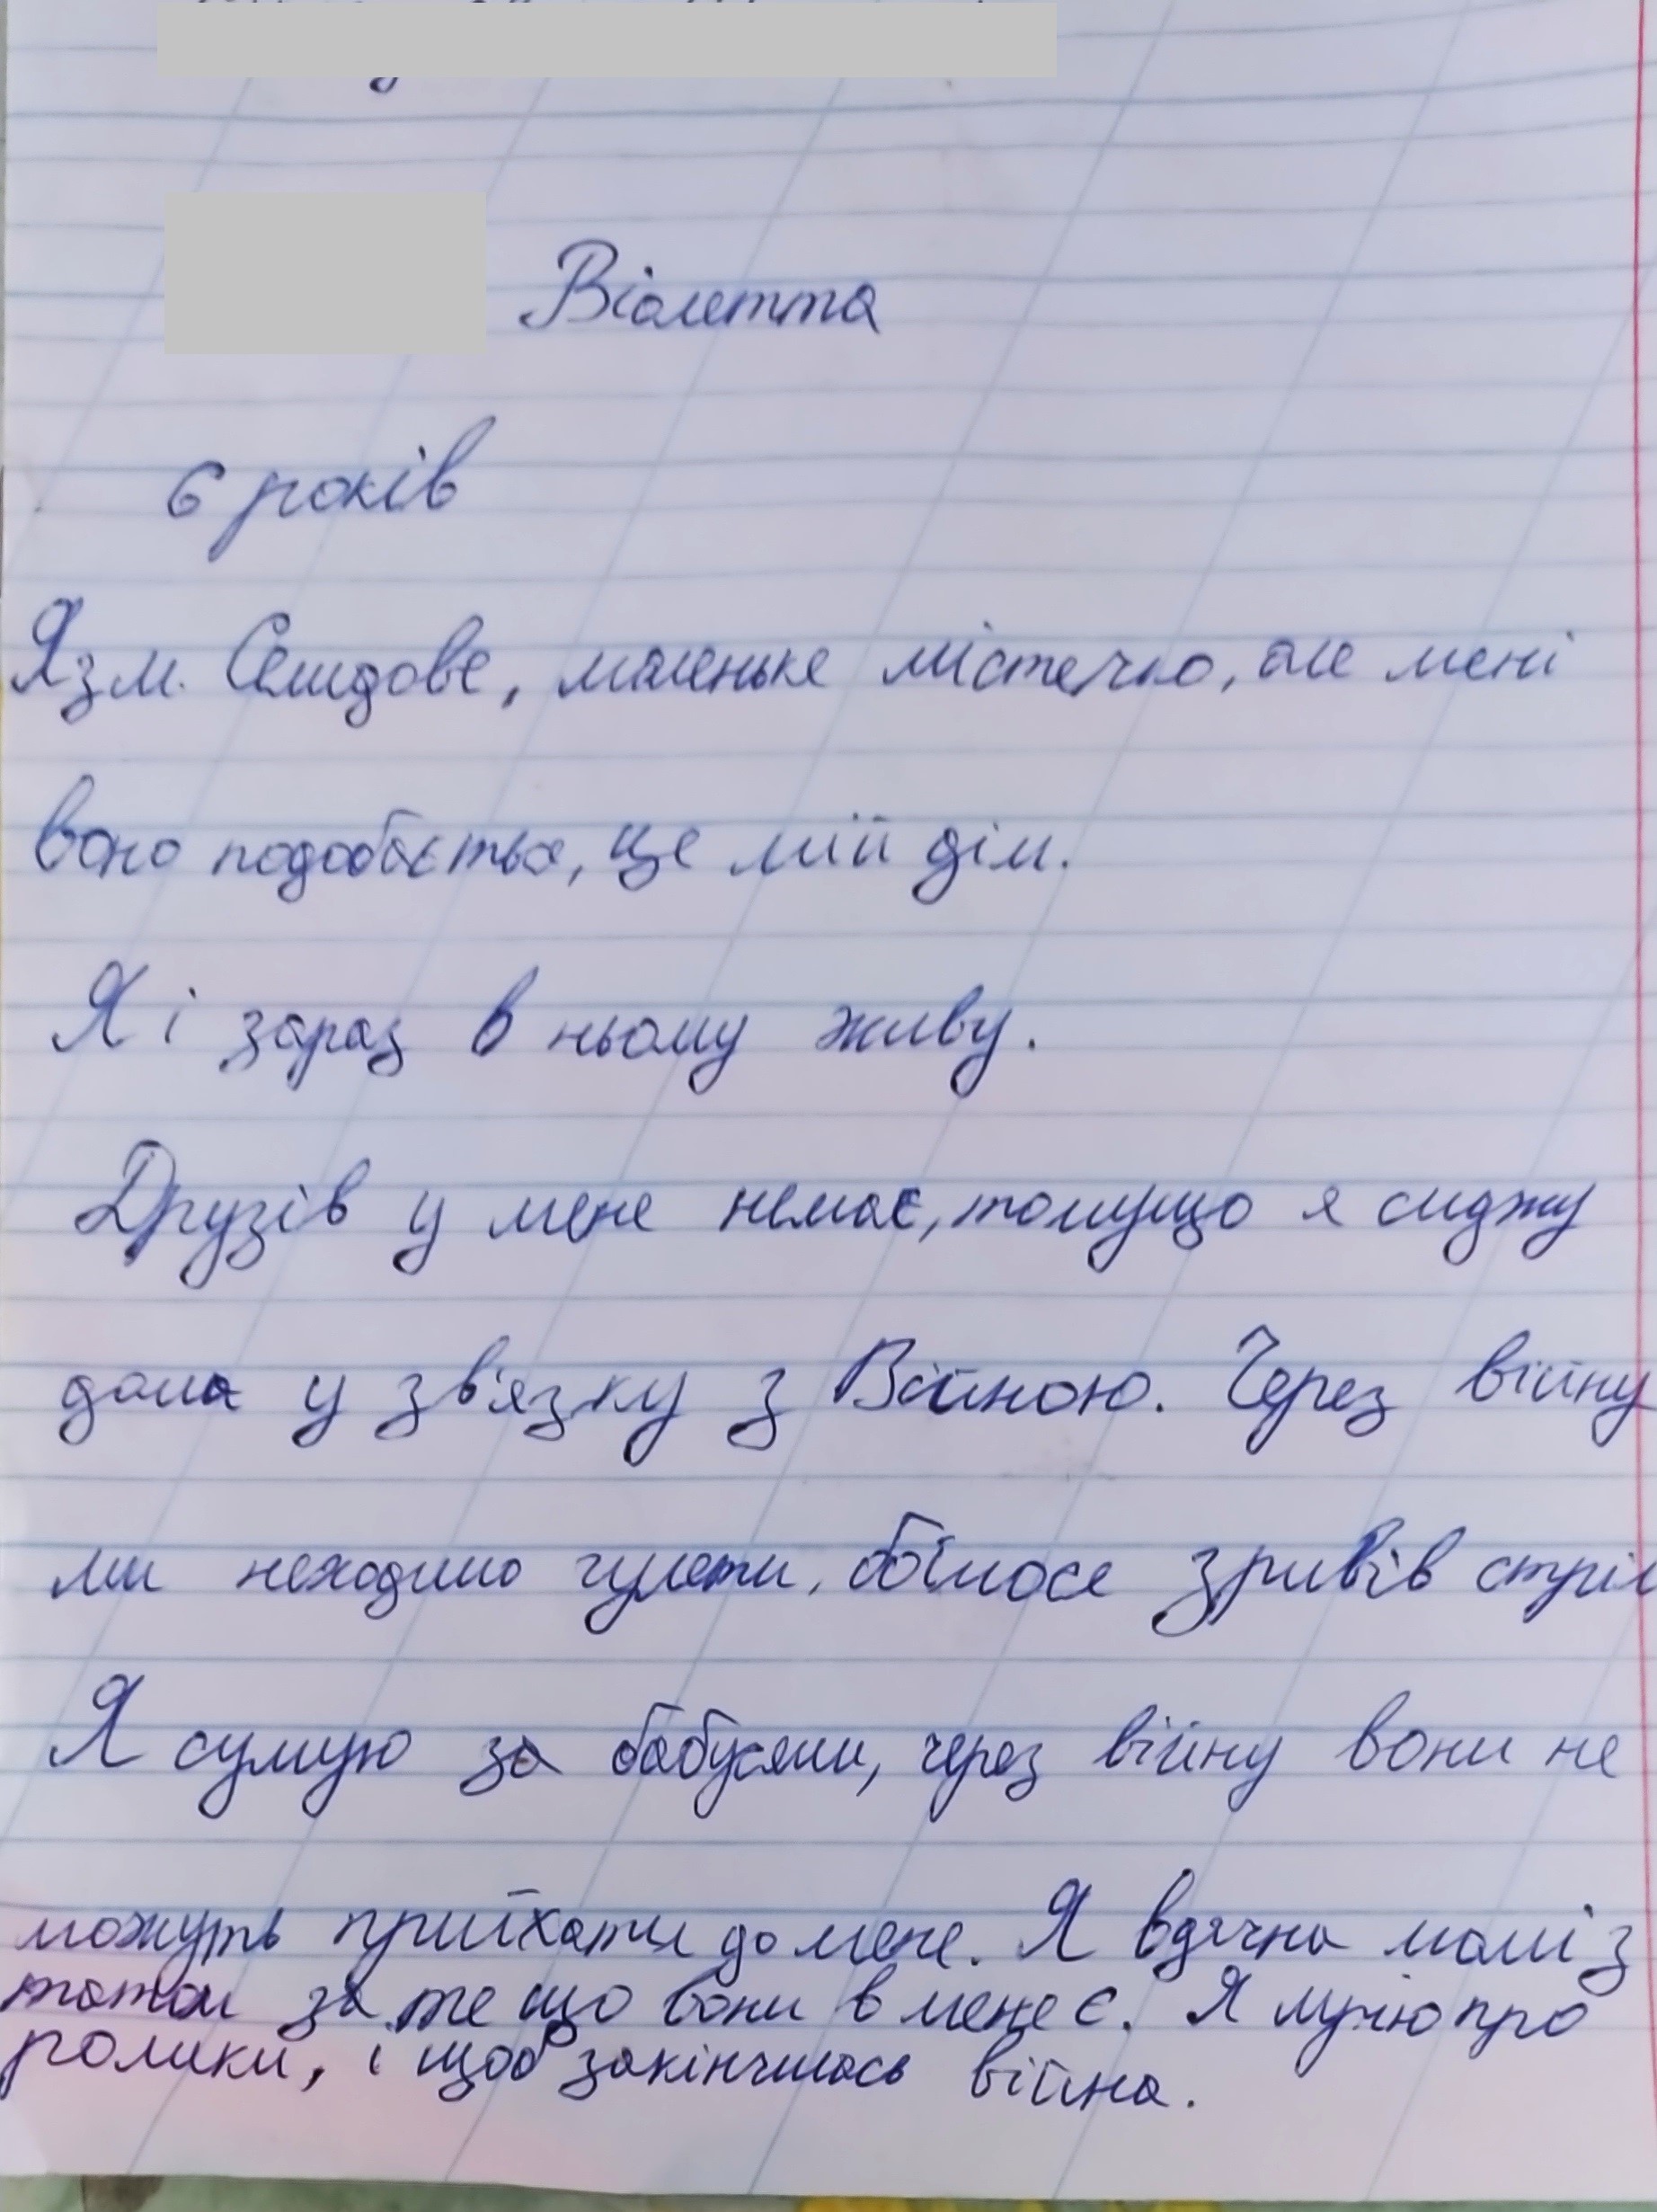 Віолетта
6 років
Я з м. Селидове, маленьке містечко, але мені
воно подобається, це мій дім.
Я і зараз в ньому живу.
Друзів у мене немає, томущо я сиджу
дома у зв'язку з Війною. Через війну
ми неходимо гуляти, боїмося зривів стріл
Я сумую за бабусями, через війну вони не
можуть приїхати до мене. Я вдячна мамі з
татом за те що вони в мене є. Я мрію про
ролики, і щоб закінчилась війна.